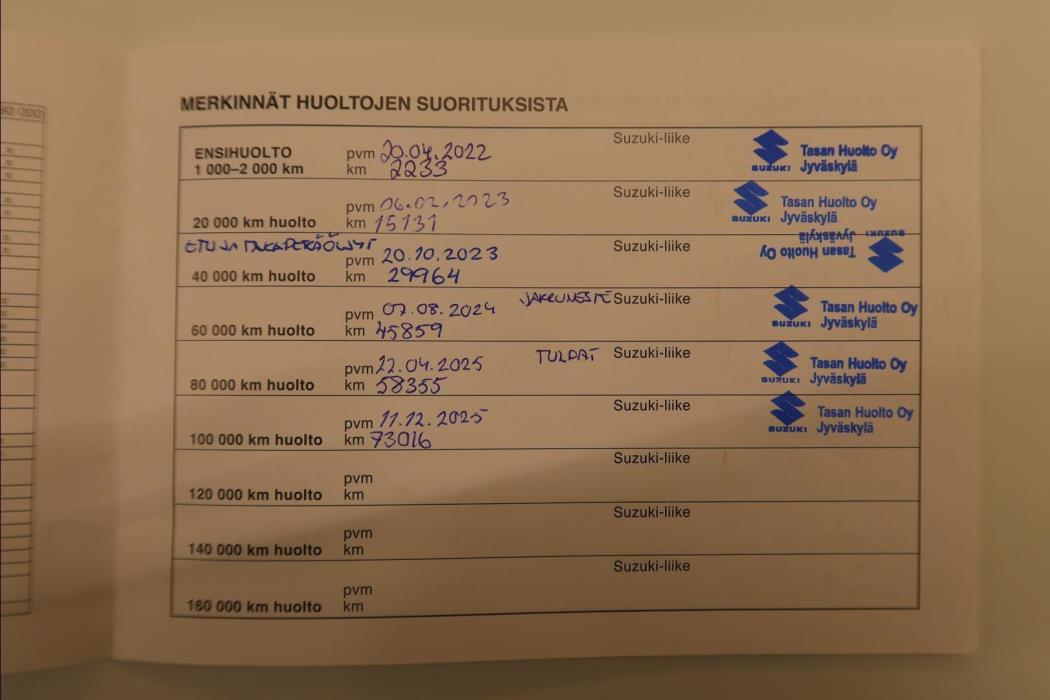 MERKINNÄT HUOLTOJEN SUORITUKSISTA
ENSIHUOLTO
1 000–2 000 km
pvm 20.04.2022
km 2233
Suzuki-liike
SUZUKI
Tasan Huolto Oy
Jyväskylä
20 000 km huolto
pvm 06.02.2023
km 15131
Suzuki-liike
SUZUKI
Tasan Huolto Oy
Jyväskylä
ETU JA TAKAPERÄÖLJYT
40 000 km huolto
pvm 20.10.2023
km 29964
Suzuki-liike
SUZUKI
Tasan Huolto Oy
Jyväskylä
60 000 km huolto
pvm 07.08.2024
km 45859
JARRUNESTE
Suzuki-liike
SUZUKI
Tasan Huolto Oy
Jyväskylä
80 000 km huolto
pvm 22.04.2025
km 58355
TULPAT
Suzuki-liike
SUZUKI
Tasan Huolto Oy
Jyväskylä
100 000 km huolto
pvm 11.12.2025
km 73016
Suzuki-liike
SUZUKI
Tasan Huolto Oy
Jyväskylä
120 000 km huolto
pvm
km
Suzuki-liike
140 000 km huolto
pvm
km
Suzuki-liike
160 000 km huolto
pvm
km
Suzuki-liike